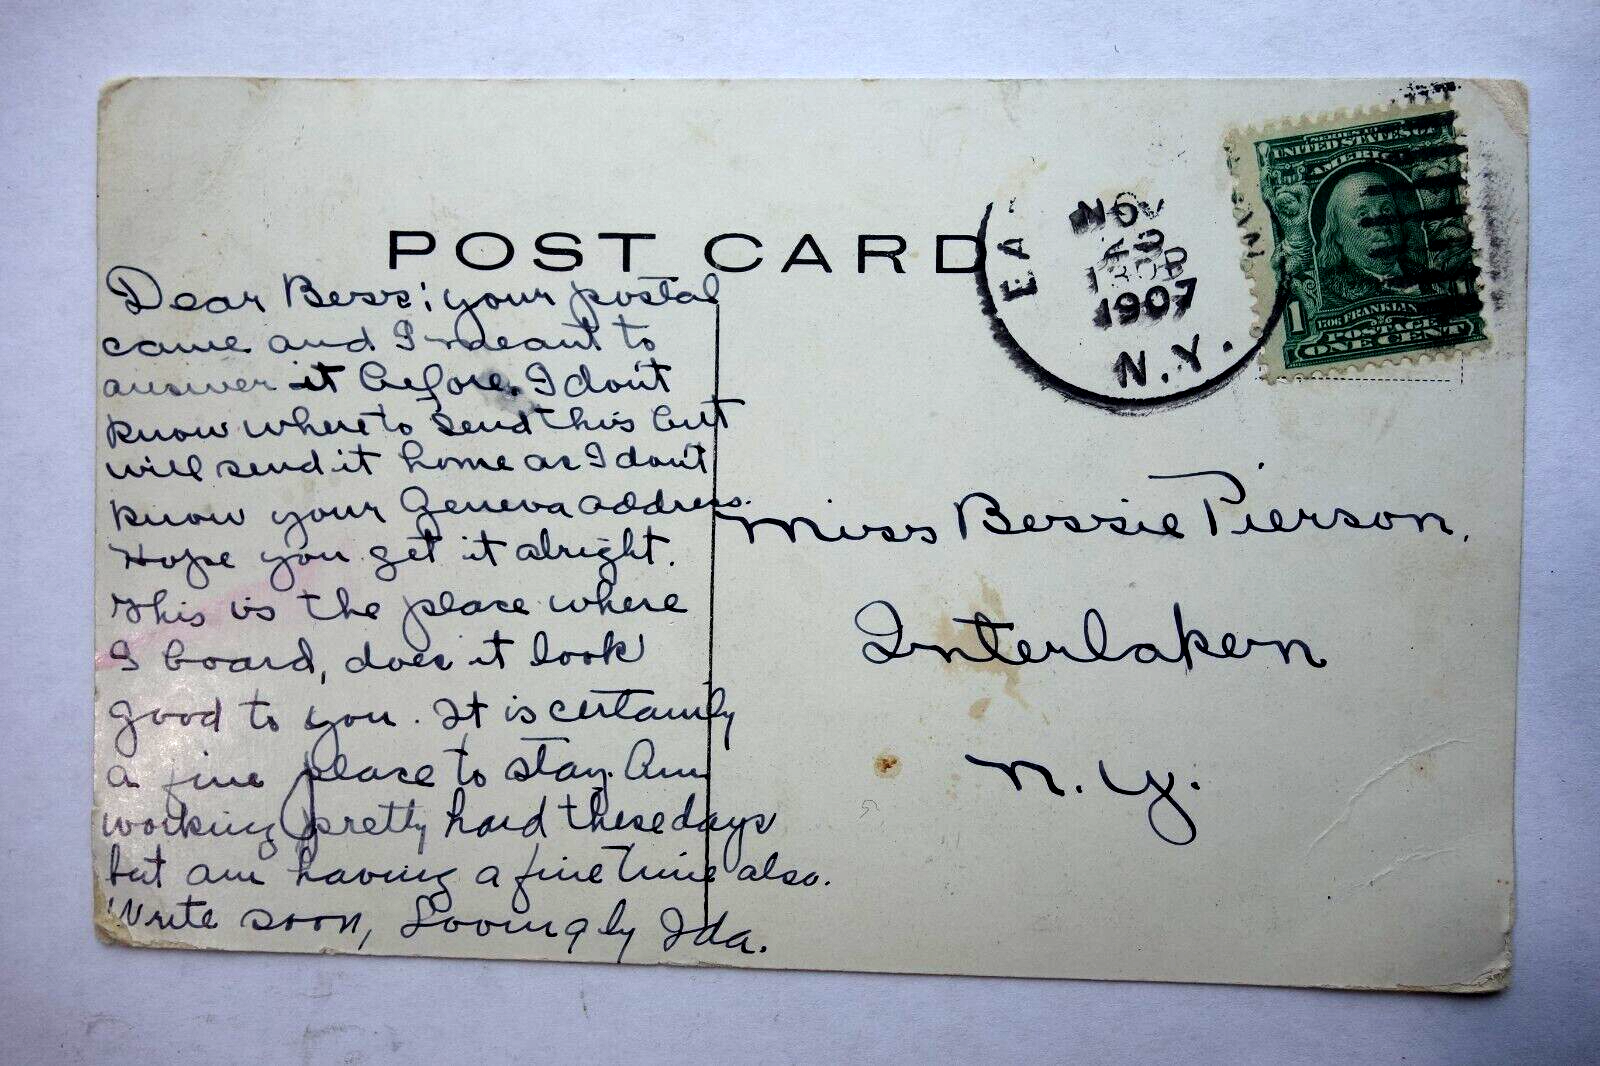 POST CARD
Dear Bess; your postal
came and I meant to
answer it before. I don't
know where to send this but
will send it home as I don't
know your Geneva address.
Hope you get it alright.
This is the place where
I board, does it look
good to you. It is certainly
a fine place to stay. Am
working pretty hard these days
but am having a fine time also.
Write soon, Lovingly Ida.
EA
NOV
1907
N.Y.
UNITED STATES OF
AMERICA
1
FRANKLIN
POSTAGE
ONE CENT
Miss Bessie Pierson,
Interlaken
N.Y.